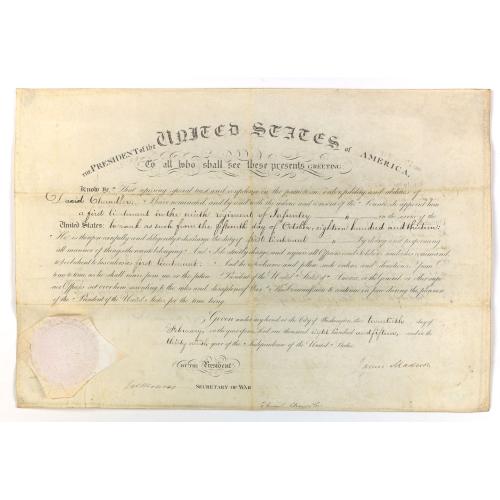 THE PRESIDENT of the UNITED STATES of AMERICA,
To all who shall see these presents GREETING
Know Ye That reposing special trust and confidence in the patriotism, valor, fidelity and abilities of
David Chandler, I have nominated, and by and with the advice and consent of the Senate do appoint him
a first lieutenant in the ninth regiment of Infantry in the service of the
United States: to rank as such from the fifteenth day of October, eighteen hundred and thirteen:
He is therefore carefully and diligently to discharge the duty of first lieutenant by doing and performing
all manner of things thereunto belonging. And I do strictly charge, and require all Officers and Soldiers under his command
to be obedient to his orders as first lieutenant: And he is to observe and follow such orders and directions from
time to time as he shall receive from me or the future President of the United States of America, or the general or other superior
Officers set over him according to the rules and discipline of War. This Commission to continue in force during the pleasure
of the President of the United States for the time being.
Given under my hand at the City of Washington, this twentieth day of
February in the year of our Lord one thousand eight hundred and fifteen, and in the
thirty ninth year of the Independence of the United States.
By the President
James Madison
Jas Monroe
SECRETARY OF WAR